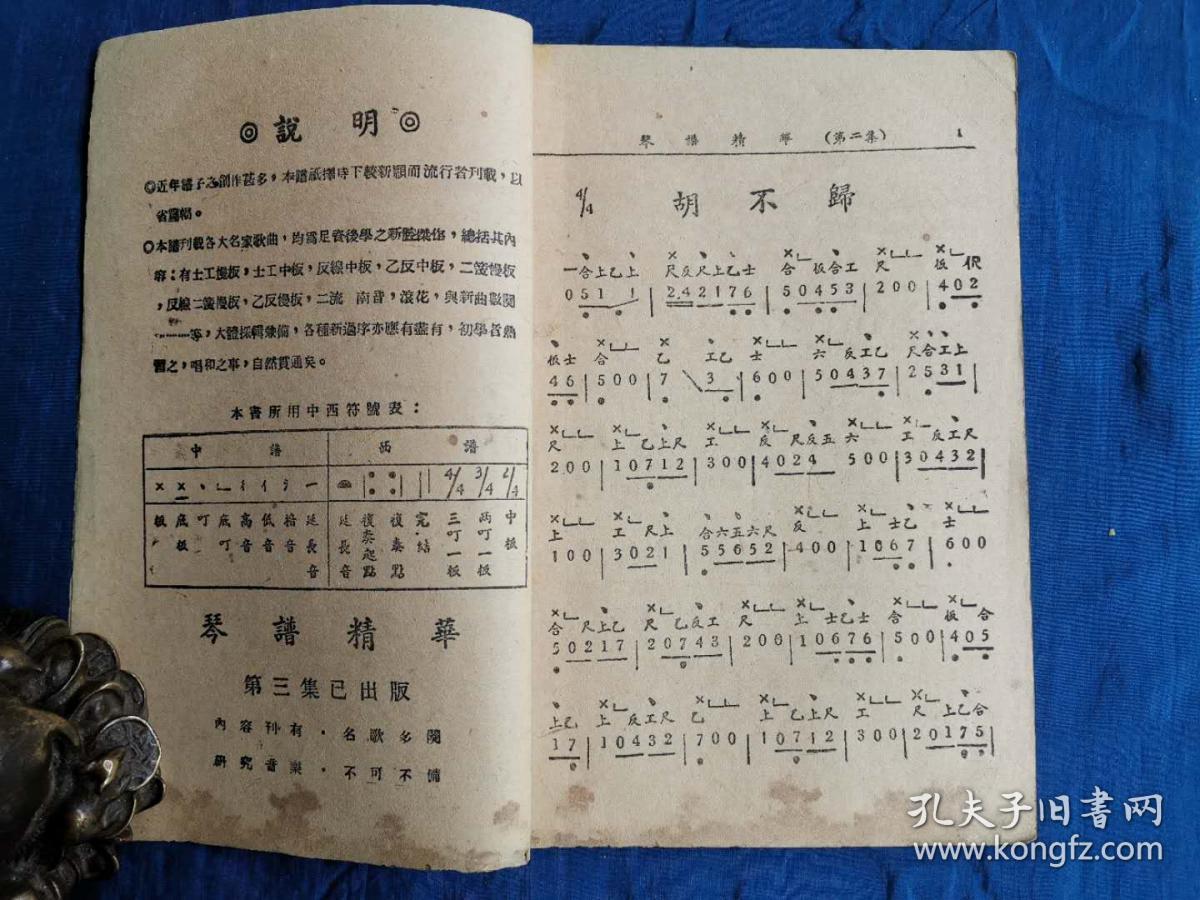 ◎說 明◎
◎近年譜子之創作甚多,本譜祇擇時下較新穎而流行者刊載,以
省篇幅。
◎本譜刊載各大名家歌曲,均為足資後學之新腔傑作,總括其內
容:有士工慢板,士工中板,反線中板,乙反中板,二簧慢板
,反線二簧慢板,乙反慢板,二流 南音,滾花,與新曲數闋
………等,大體採輯兼備,各種新過序亦應有盡有,初學者熟
習之,唱和之事,自然貫通矣。
本書所用中西符號表:
中譜 西譜
4/4 3/4 2/4
板 底板 叮 底叮 高音 低音 拾音 延長音 延長音 復奏起點 復奏點 完結 三叮一板 兩叮一板 中板
琴譜精華
第三集已出版
內容刊有・名歌多闋
研究音樂・不可不備
琴譜精華(第二集) 1
4/4 胡不歸
一合上乙上 尺反尺上乙士 合 板合工 尺 板 伬
0 5 1 1 | 2 4 2 1 7 6 | 5 0 4 5 3 | 2 0 0 | 4 0 2
板士 合 乙 工乙 士 六 反工乙 尺合工上
4 6 | 5 0 0 | 7 3 | 6 0 0 | 5 0 4 3 7 | 2 5 3 1 |
尺 上 乙上尺 工 反 尺反五六 工 反工尺
2 0 0 | 1 0 7 1 2 | 3 0 0 | 4 0 2 4 5 0 0 | 3 0 4 3 2 |
上 工 尺上 合六五六尺 反 上 士乙 士
1 0 0 | 3 0 2 1 | 5 5 6 5 2 | 4 0 0 | 1 0 6 7 | 6 0 0
合 尺上乙 尺 乙反工 尺 上 士乙士 合 板 合
5 0 2 1 7 | 2 0 7 4 3 | 2 0 0 | 1 0 6 7 6 | 5 0 0 | 4 0 5
上乙 上 反工尺 乙 上 乙上尺 工 尺 上乙合
1 7 | 1 0 4 3 2 | 7 0 0 | 1 0 7 1 2 | 3 0 0 | 2 0 1 7 5 |
孔夫子旧书网
www.kongfz.com